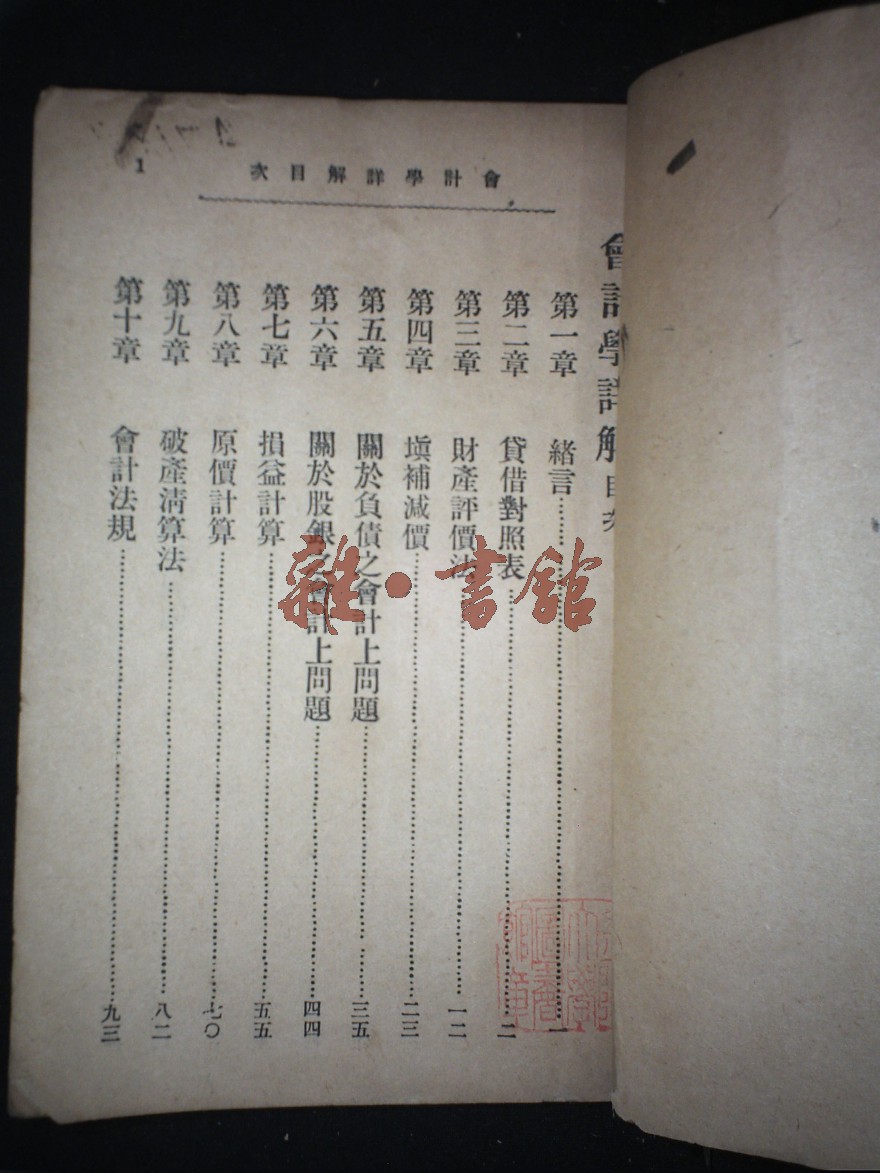 會計學詳解目次
1
會計學詳解目次
第一章 緒言 一
第二章 貸借對照表 二
第三章 財產評價法 一二
第四章 塡補減價 二三
第五章 關於負債之會計上問題 三五
第六章 關於股銀之會計上問題 四四
第七章 損益計算 五五
第八章 原價計算 七〇
第九章 破產淸算法 八二
第十章 會計法規 九三
雜·書館